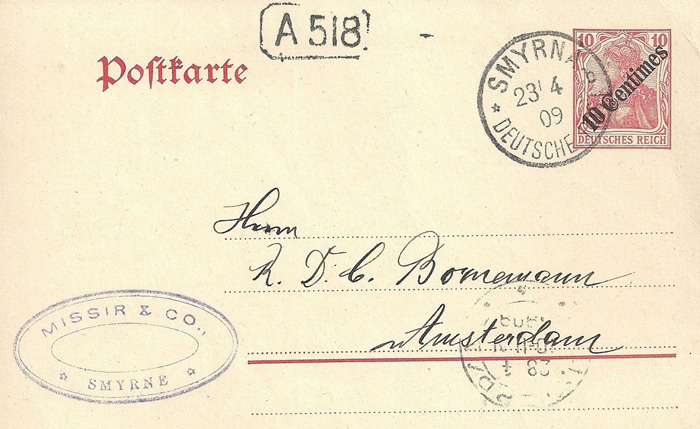 A 518
Postkarte
SMYRNA
23 4
09
DEUTSCHE
10 10
10 Centimes
DEUTSCHES REICH
Herrn
R. D. C. Bornemann
Amsterdam
MISSIR & CO.,
SMYRNE